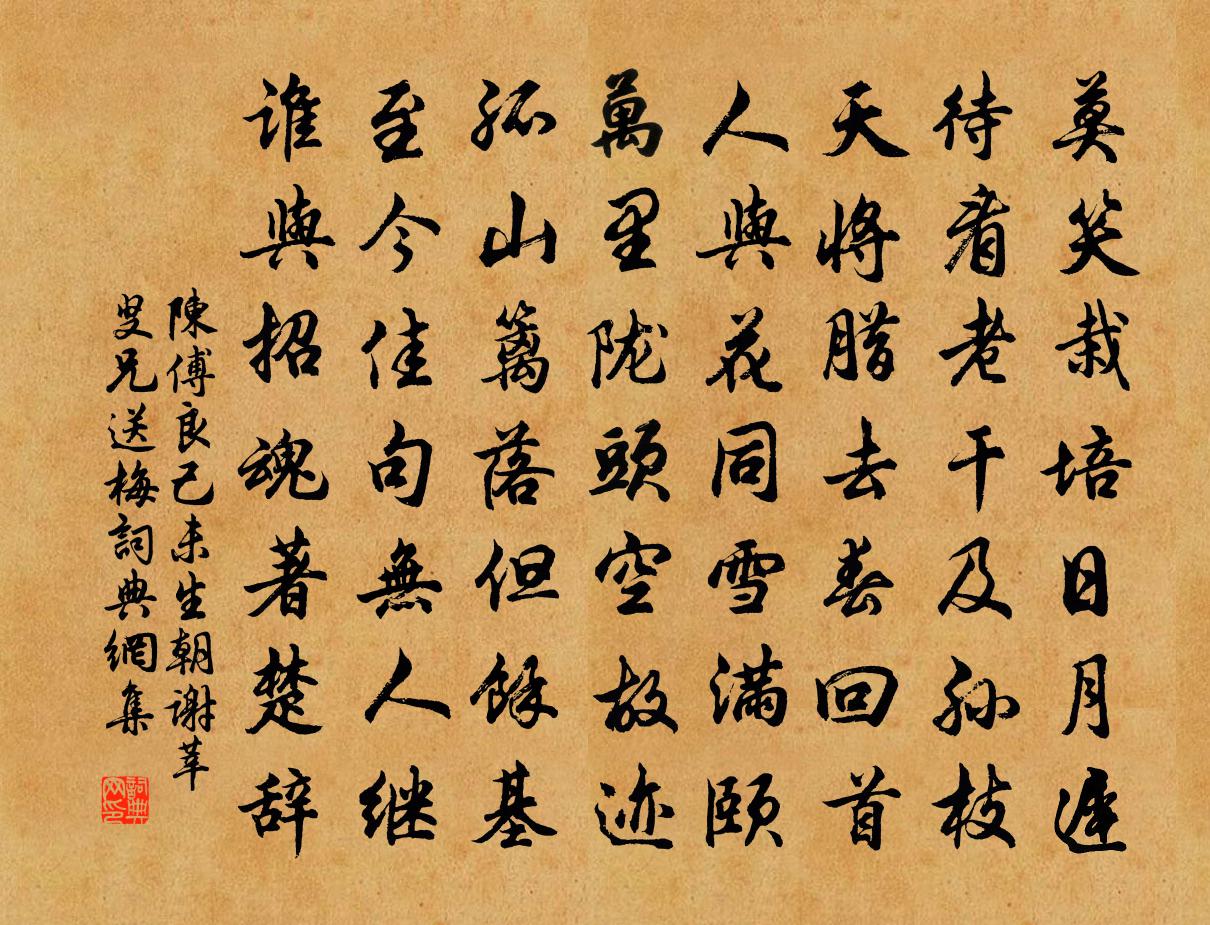 莫笑栽培日月遲
待看老干及孙枝
天將腊去春回首
人與花同雪满颐
萬里陇頭空故迹
孤山篱落但餘基
至今佳句無人继
谁與招魂著楚辞
陳傅良己未生朝谢莘
叟兄送梅詞典網集
詞典
网印